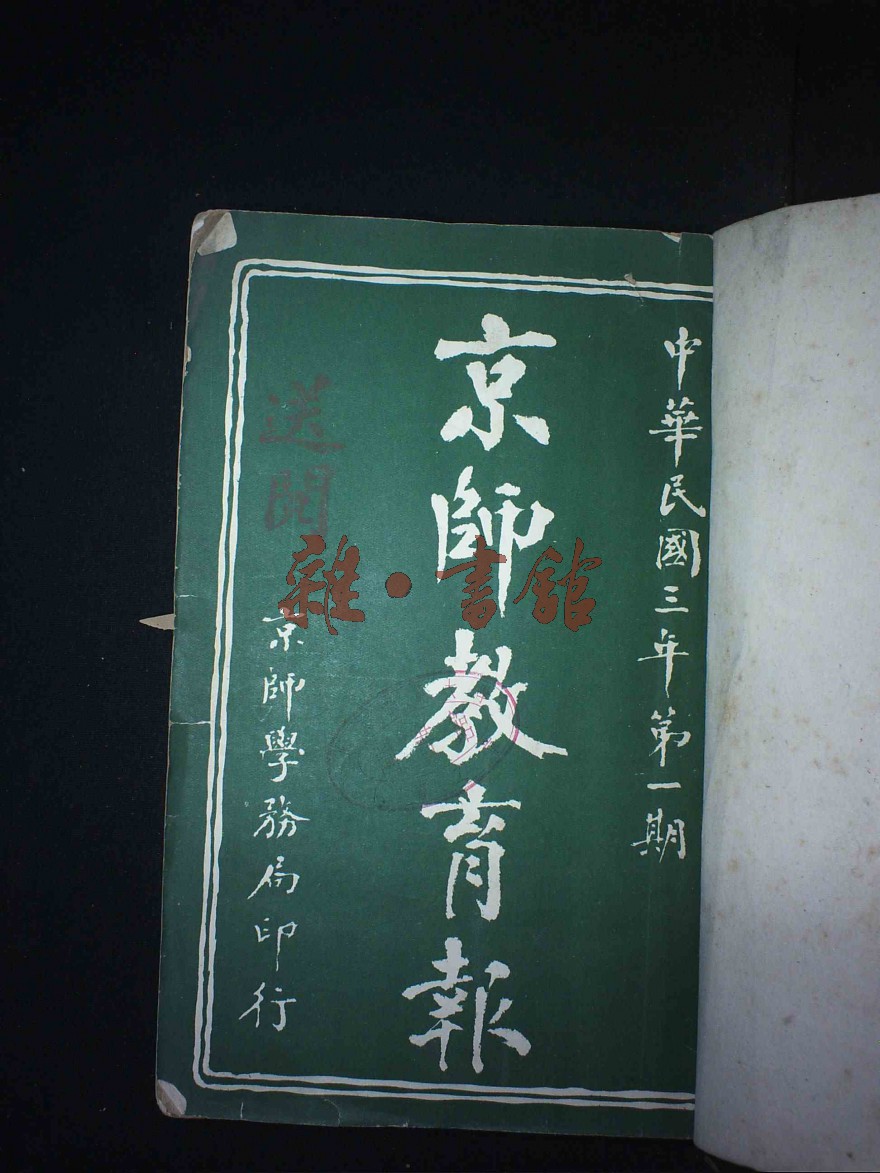 中華民國三年第一期
京師教育報
京師學務局印行
送閱
雜·書館